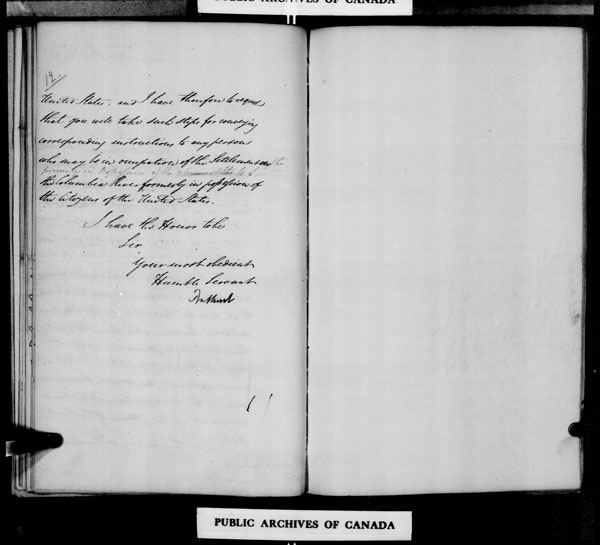 PUBLIC ARCHIVES OF CANADA
12/
United States, and I have therefore to request
that you will take such steps for conveying
corresponding instructions to any persons
who may be in occupation of the Settlement on
the Columbia River formerly in possession of
the Citizens of the United States.
I have the Honor to be
Sir
Your most obedient
Humble Servant
Bathurst
PUBLIC ARCHIVES OF CANADA